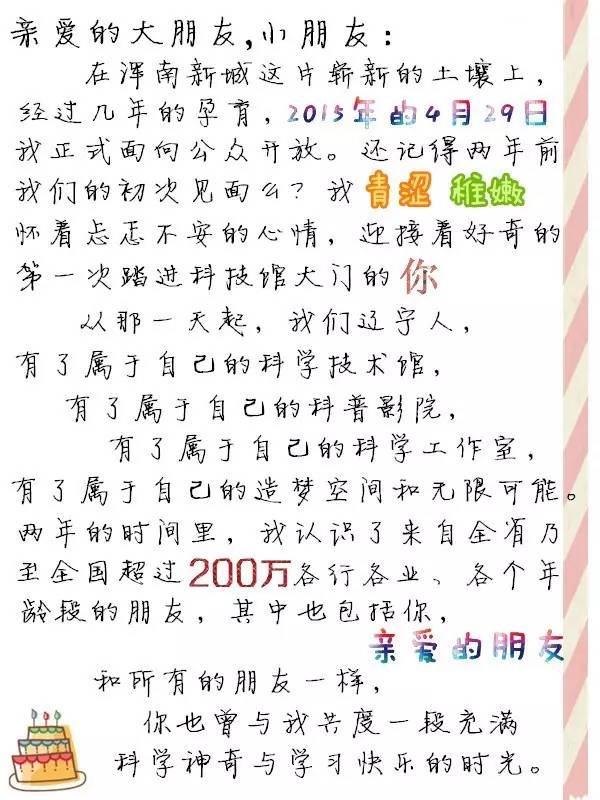 亲爱的大朋友,小朋友:
在浑南新城这片崭新的土壤上,
经过几年的孕育,2015年的4月29日
我正式面向公众开放。还记得两年前
我们的初次见面么?我青涩 稚嫩
怀着忐忑不安的心情,迎接着好奇的
第一次踏进科技馆大门的你
从那一天起,我们辽宁人,
有了属于自己的科学技术馆,
有了属于自己的科普影院,
有了属于自己的科学工作室,
有了属于自己的造梦空间和无限可能。
两年的时间里,我认识了来自全省乃
至全国超过200万各行各业、各个年
龄段的朋友,其中也包括你,
亲爱的朋友
和所有的朋友一样,
你也曾与我共度一段充满
科学神奇与学习快乐的时光。